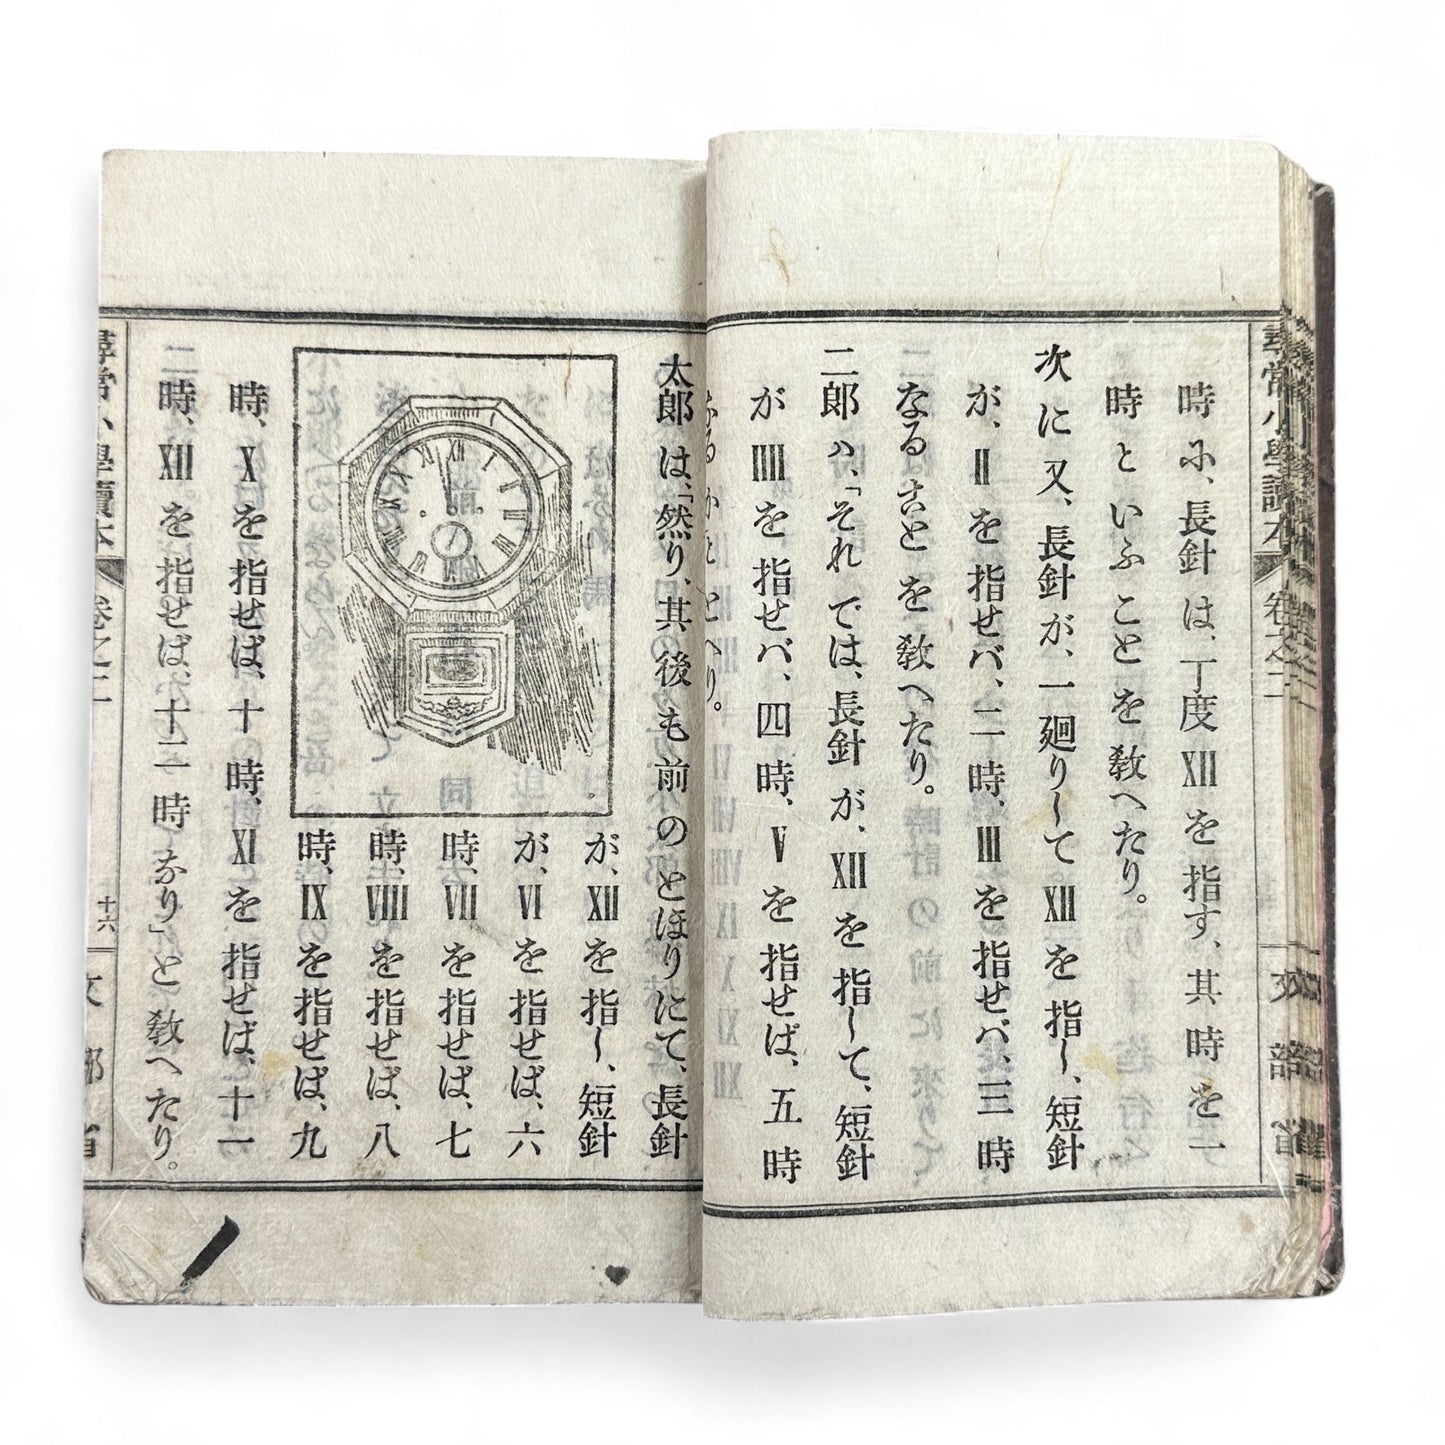 時に、長針は、丁度XIIを指す、其時を一
時といふことを敎へたり。
次に又、長針が、一廻りしてXIIを指し、短針
が、IIを指せバ、二時、IIIを指せバ、三時
なることを敎へたり。
二郎ハ、「それでは、長針が、XIIを指して、短針
がIIIIを指せバ、四時、Vを指せば、五時
なるかとと
へり。
太郎は、「然り、其後も前のとほりにて、長針
が、XIIを指し、短針
が、VIを指せば、六
時、VIIを指せば、七
時、VIIIを指せば、八
時、IXを指せば、九
時、Xを指せば、十時、XIを指せば、十一
時、XIIを指せば、十二時なり」と敎へたり。
尋常小學讀本
卷之二
十六
文部省
尋常小學讀本
卷之二
文部省